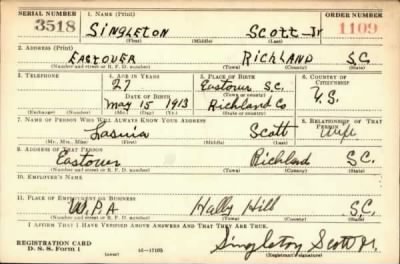 SERIAL NUMBER 1. NAME (Print) ORDER NUMBER
3518 Singleton Scott Jr 1109
(First) (Middle) (Last)
2. ADDRESS (Print)
Eastover Richland S.C.
(Number and street or R. F. D. number) (Town) (County) (State)
3. TELEPHONE 4. AGE IN YEARS 5. PLACE OF BIRTH 6. COUNTRY OF CITIZENSHIP
27 Eastover S.C.
DATE OF BIRTH (Town or county)
May 15 1913 Richland Co U.S.
(Exchange) (Number) (Mo.) (Day) (Yr.) (State or country)
7. NAME OF PERSON WHO WILL ALWAYS KNOW YOUR ADDRESS 8. RELATIONSHIP OF THAT PERSON
Scott Wife
(Mr., Mrs., Miss) (First) (Middle) (Last)
9. ADDRESS OF THAT PERSON
Eastover Richland S.C.
(Number and street or R. F. D. number) (Town) (County) (State)
10. EMPLOYER'S NAME
11. PLACE OF EMPLOYMENT OR BUSINESS
W.P.A Holly Hill S.C.
(Number and street or R. F. D. number) (Town) (County) (State)
I AFFIRM THAT I HAVE VERIFIED ABOVE ANSWERS AND THAT THEY ARE TRUE.
REGISTRATION CARD
D. S. S. Form 1 Singleton Scott Jr.
(over) (Registrant's signature)